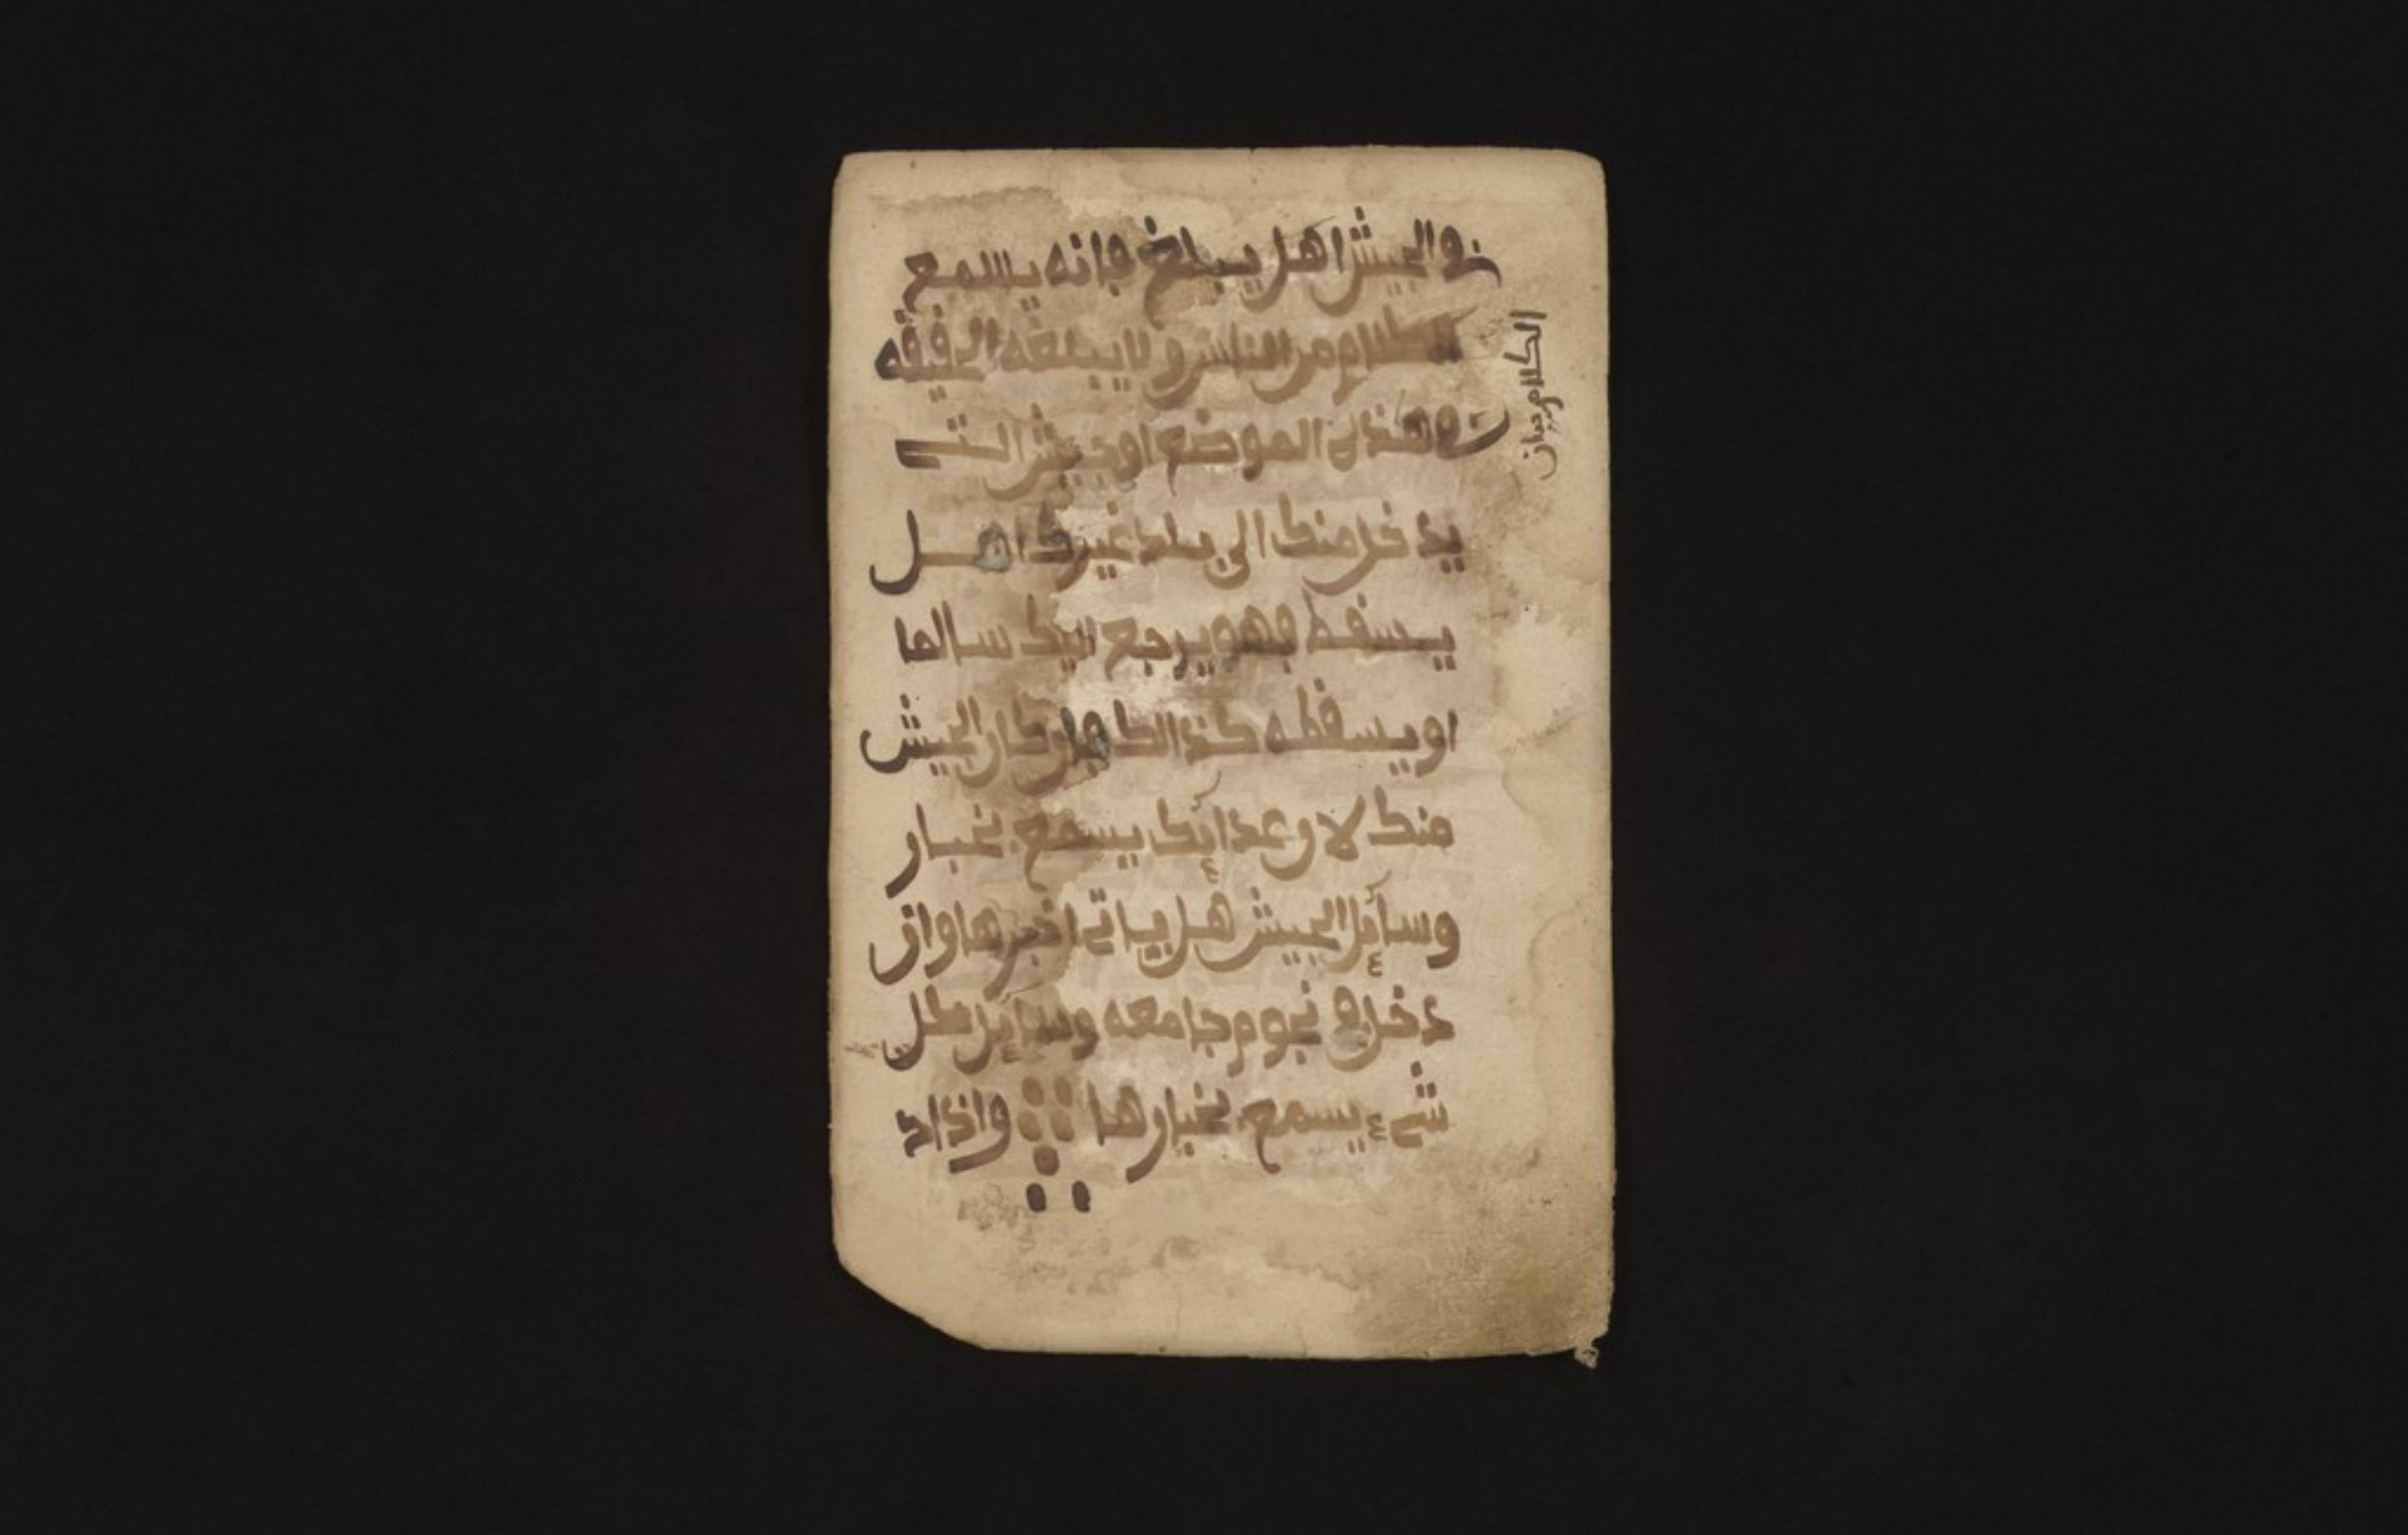 والجيش اهل يبلغ فانه يسمع
الكلام من الناس ولا يبلغه الحقيقه
وهذه الموضع او جيش التي
يدخل منك الى بلد غيرك اهل
يسفط فهو يرجع اليك سالما
او يسفطه كذالك هل كان الجيش
منك لا وعدائك يسمع خبار
وسائل الجيش هل ياتي اخبرها وان
دخل في نجوم جامعه وسائر كل
شيء يسمع خبارها واذا اد
الكلام بيان